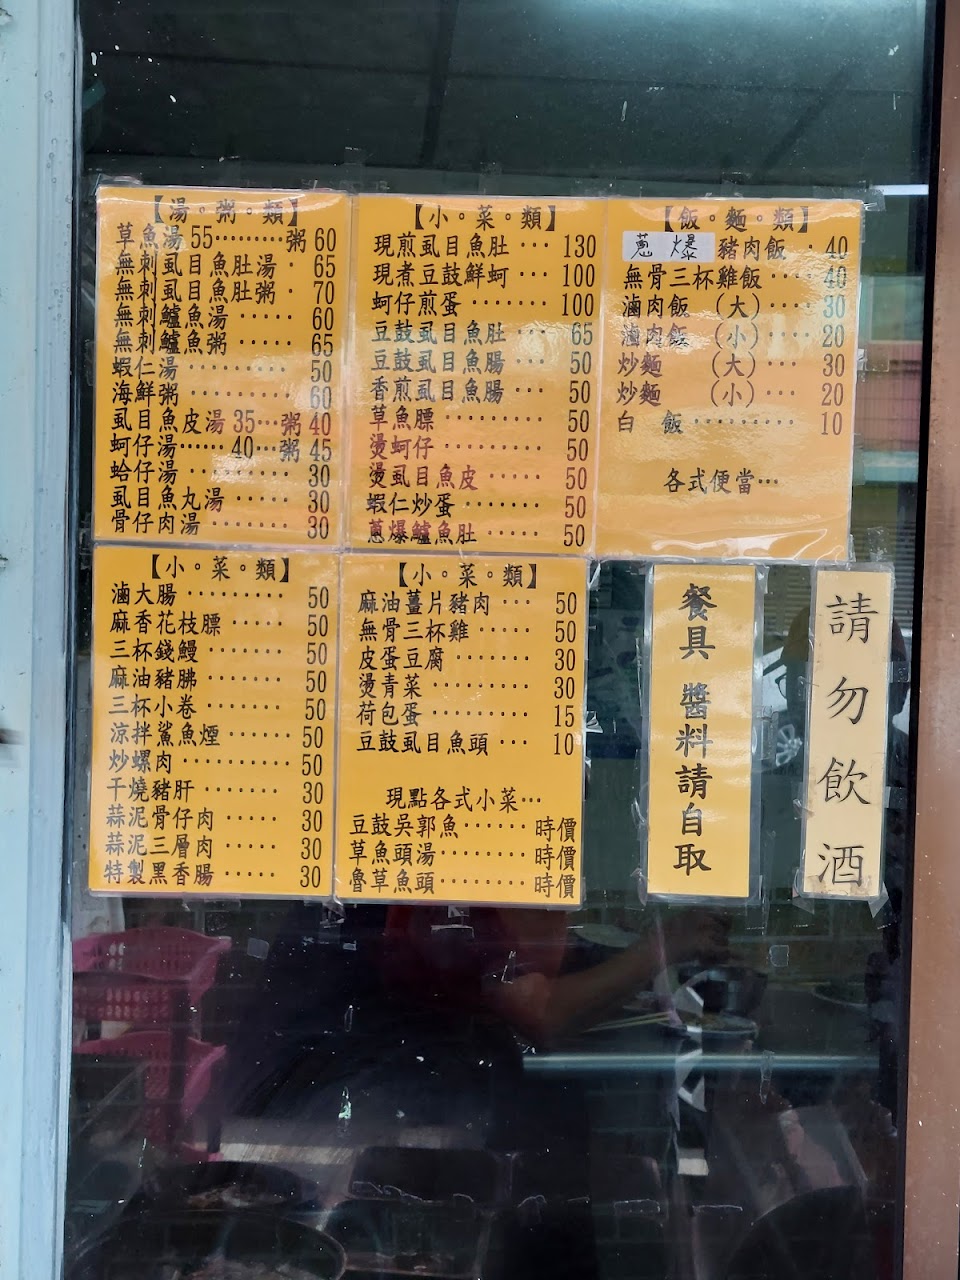 【湯。粥。類】
草魚湯 55………粥 60
無刺虱目魚肚湯 · 65
無刺虱目魚肚粥 · 70
無刺鱸魚湯 ····· 60
無刺鱸魚粥 ····· 65
蝦仁湯 ········· 50
海鮮粥 ········· 60
虱目魚皮湯 35…粥 40
蚵仔湯……40…粥 45
蛤仔湯 ········· 30
虱目魚丸湯 ····· 30
骨仔肉湯 ······· 30
【小。菜。類】
現煎虱目魚肚 ··· 130
現煮豆鼓鮮蚵 ··· 100
蚵仔煎蛋 ······· 100
豆鼓虱目魚肚 ··· 65
豆鼓虱目魚腸 ··· 50
香煎虱目魚腸 ··· 50
草魚膘 ········· 50
燙蚵仔 ········· 50
燙虱目魚皮 ····· 50
蝦仁炒蛋 ······· 50
蔥爆鱸魚肚 ····· 50
【飯。麵。類】
蔥爆豬肉飯 · 40
無骨三杯雞飯 ···· 40
滷肉飯 (大) ···· 30
滷肉飯 (小) ···· 20
炒麵 (大) ··· 30
炒麵 (小) ··· 20
白 飯 ·········· 10
各式便當…
【小。菜。類】
滷大腸 ········· 50
麻香花枝膘 ····· 50
三杯錢鰻 ······· 50
麻油豬胇 ······· 50
三杯小卷 ······· 50
涼拌鯊魚煙 ····· 50
炒螺肉 ········· 50
干燒豬肝 ······· 30
蒜泥骨仔肉 ····· 30
蒜泥三層肉 ····· 30
特製黑香腸 ····· 30
【小。菜。類】
麻油薑片豬肉 ··· 50
無骨三杯雞 ····· 50
皮蛋豆腐 ······· 30
燙青菜 ········· 30
荷包蛋 ········· 15
豆鼓虱目魚頭 ··· 10
現點各式小菜…
豆鼓吳郭魚······時價
草魚頭湯········時價
魯草魚頭········時價
餐具 醬料請自取
請勿飲酒